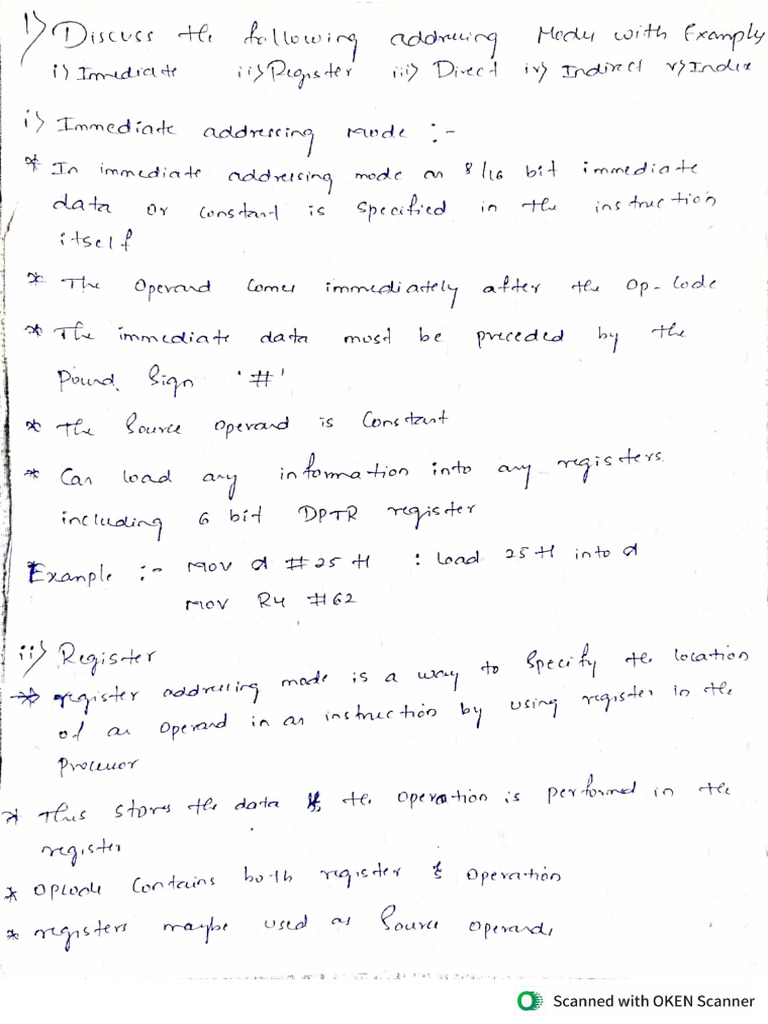 1) Discuss the following addressing Modes with Example
i) Immediate ii) Register iii) Direct iv) Indirect v) Index
i) Immediate addressing mode :-
* In immediate addressing mode an 8/16 bit immediate
data or constant is specified in the instruction
itself
* The Operand comes immediately after the Op-code
* The immediate data must be preceded by the
Pound Sign '#'
* The Source operand is Constant
* Can load any information into any registers
including 6 bit DPTR register
* Example :- MOV A #25H : load 25H into A
MOV R4 #62
ii) Register
* register addressing mode is a way to Specify the location
of an Operand in an instruction by using register in the
Processor
* This stores the data & the operation is performed in the
register
* Opcode Contains both register & Operation
* registers maybe used as Source operands
Scanned with OKEN Scanner